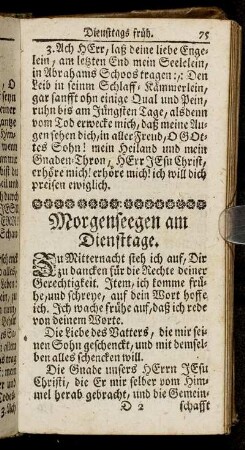 Dienstags früh. 75
3. Ach HErr, laß deine liebe Enge-
lein, am letzten End mein Seelelein,
in Abrahams Schoos tragen :,: Den
Leib in seinm Schlaff-Kämmerlein,
gar sanfft ohn einige Qual und Pein,
ruhn bis am Jüngsten Tage, alsdenn
vom Tod erwecke mich, daß meine Au-
gen sehen dich, in aller Freud, O GOt-
tes Sohn! mein Heiland und mein
Gnaden-Thron, HErr JEsu Christ,
erhöre mich! erhöre mich! ich will dich
preisen ewiglich.
Morgenseegen am
Dienstage.
Zu Mitternacht steh ich auf, Dir
zu dancken für die Rechte deiner
Gerechtigkeit. Item, ich komme frü-
he, und schreye, auf dein Wort hoffe
ich. Ich wache frühe auf, daß ich rede
von deinem Worte.
Die Liebe des Vatters, die mir sei-
nen Sohn geschenckt, und mit demsel-
ben alles schencken will.
Die Gnade unsers HErrn JEsu
Christi, die Er mir selber vom Him-
mel herab gebracht, und die Gemein-
D 2 schafft